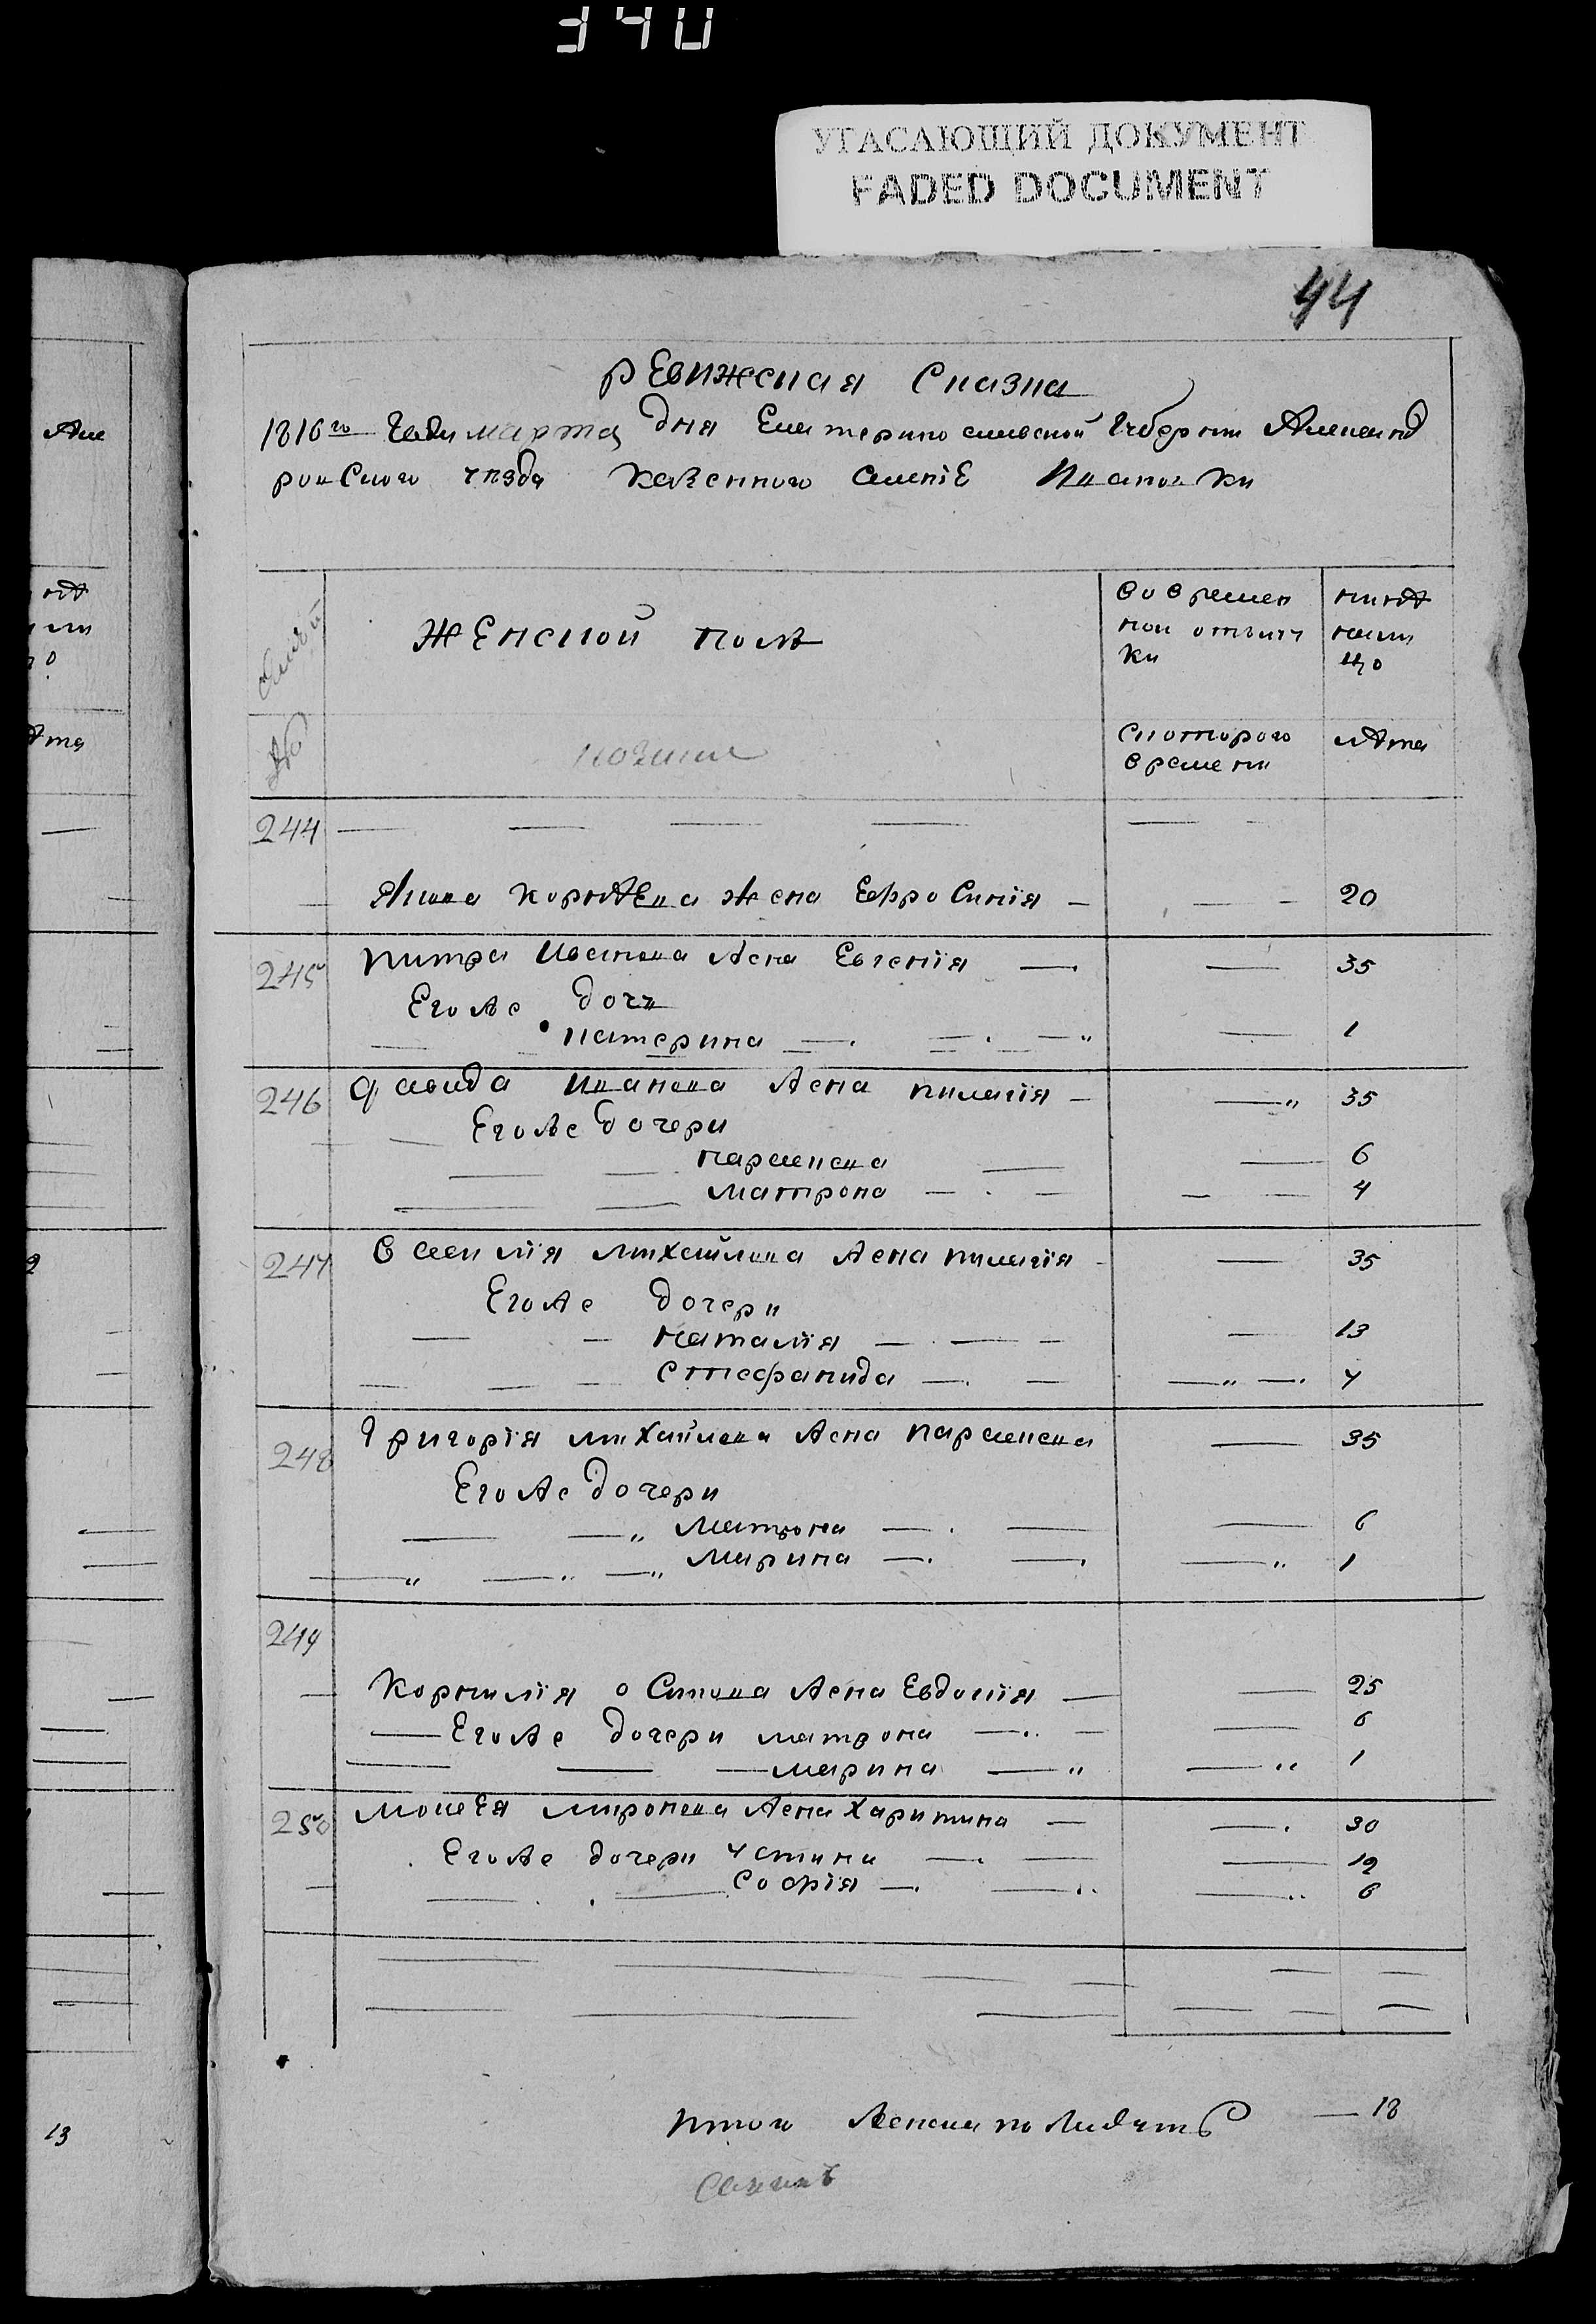 340
УГАСАЮЩИЙ ДОКУМЕНТ
FADED DOCUMENT
44
ревижская Сказка
1816го Года марта дня Екатеринославской Губернии Александ
ровского уезда казенного селенiе Ивановки
Женской пол
во времен
ной отлуч
ки
ныне
налицо
№
с которого
времени
лета
244
Якова Корнеева жена Ефросинiя 20
245 Петра Иванова жена Евгенiя 35
Его же дочь
Катерина 1
246 Давида Иванова жена пилагiя 35
Его же дочери
парасковa 6
Матрона 4
247 Василiя Михайлова жена пилагiя 35
Его же дочери
Наталiя 13
Стефанида 7
248 Григорiя Михайлова жена параскова 35
Его же дочери
Матрона 6
Марина 1
249
Корнилiя Осипова жена Евдокiя 25
Его же дочери матрона 6
марина 1
250 Мойсея Миронова жена Харитина 30
Его же дочери Устина 12
Софiя 6
Итого женска пола 18
ете
ме
13